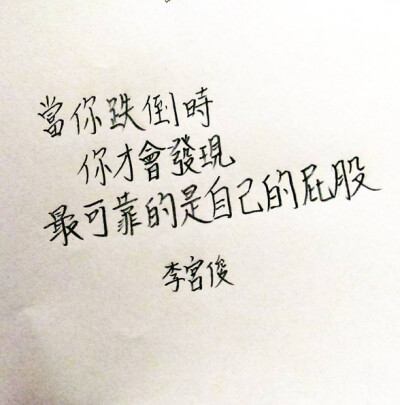 當你跌倒時
你才會發現
最可靠的是自己的屁股
李宮俊